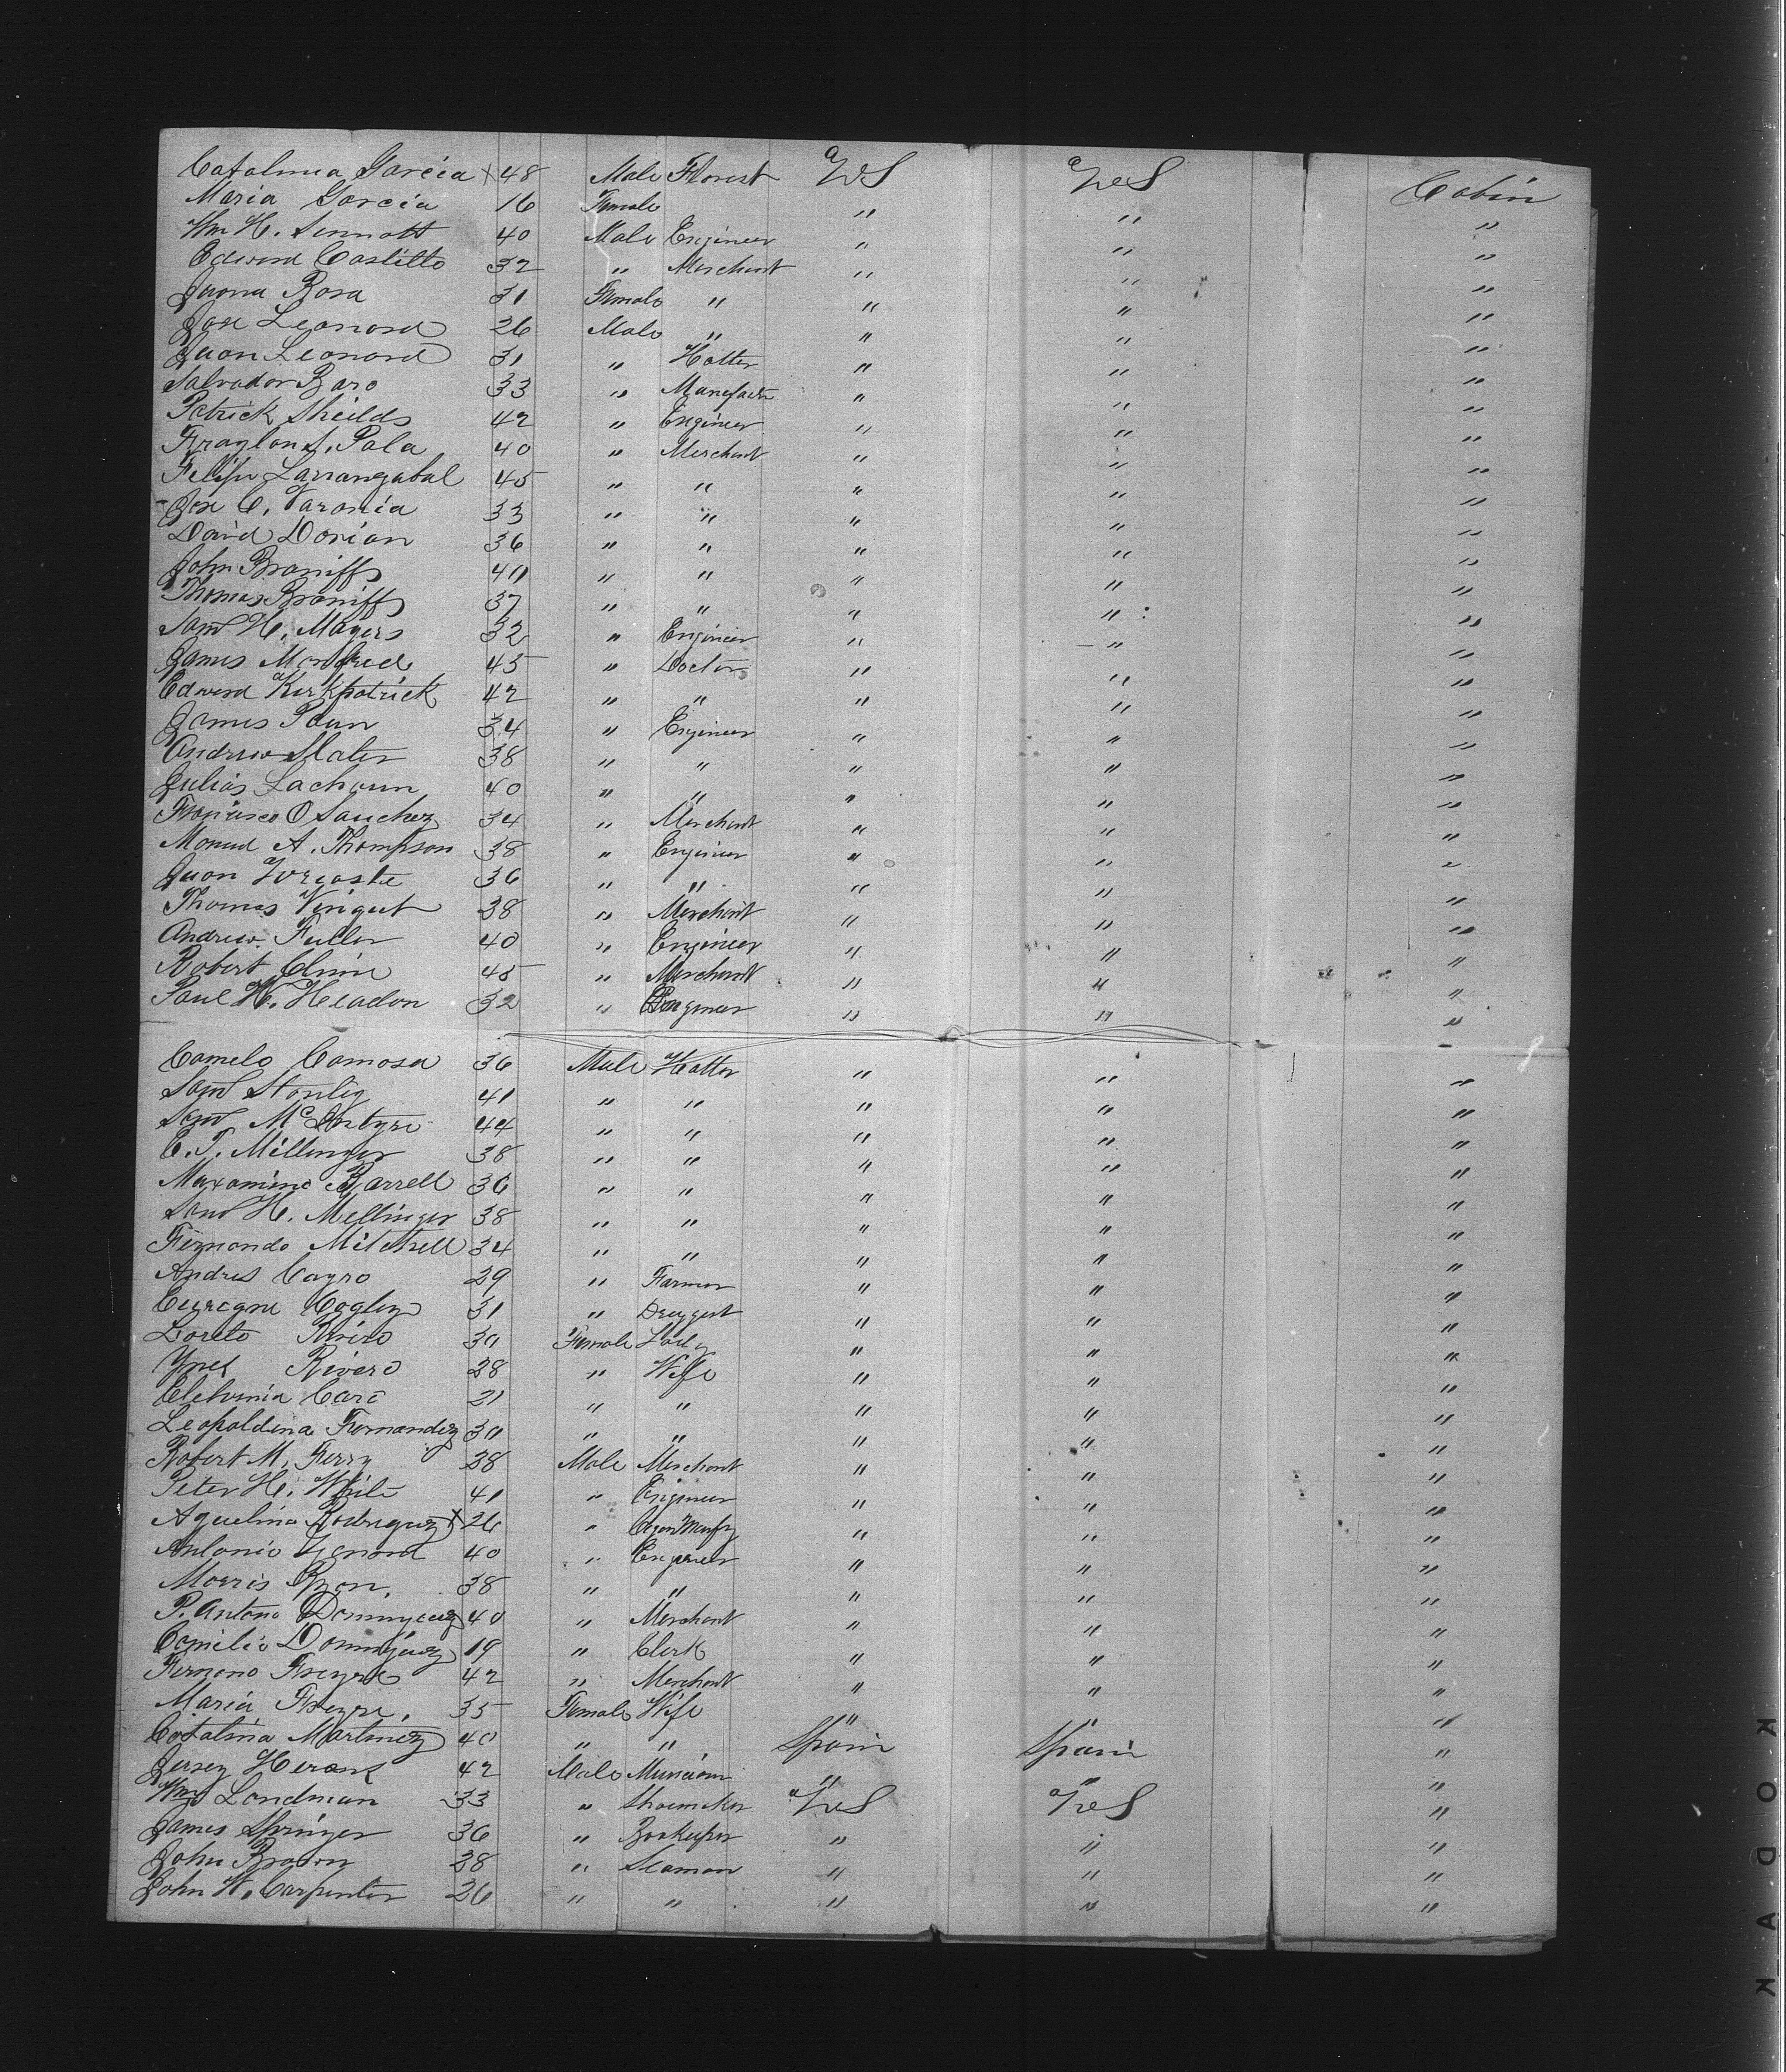 Catalina Garcia x 48 Male Florest U.S U.S Cabin
Maria Garcia 16 Female " " "
Wm H. Sinnott 40 Male Engineer " " "
Edward Castillo 32 " Merchant " " "
Juana Rosa 31 Female " " " "
Jose Leonard 26 Male " " " "
Juan Leonard 31 " Hatter " " "
Salvador Baro 33 " Manefactr " " "
Patrick Sheilds 42 " Engineer " " "
S. Pola 40 " Merchant " " "
Felipe Larrangabal 45 " " " " "
Jose C. Varonia 33 " " " " "
David Dorian 36 " " " " "
John Braniff 40 " " " " "
Thomas Braniff 37 " " " " "
Saml H. Mayers 32 " Engineer " " "
James 45 " Doctor " " "
Edward Kirkpatrick 42 " " " " "
James 34 " Engineer " " "
Andrew Slater 38 " " " " "
Julias Lachaum 40 " " " " "
Francisco O Sanchez 34 " Merchant " " "
A. Thompson 38 " Engineer " " "
Juan 36 " " " " "
Thomas Vingut 38 " Merchant " " "
Andrew Fuller 40 " Engineer " " "
Robert Clime 45 " Merchant " " "
Paul H. Headon 32 " Engineer " " "
Camelo Camosa 36 Male Hatter " " "
Saml Stanley 41 " " " " "
Saml McIntyre 44 " " " " "
C. T. Millinger 38 " " " " "
Maxamino Barrell 36 " " " " "
Saml H. Mellinger 38 " " " " "
Fernando Mitchell 34 " " " " "
Andres Cayro 29 " Farmer " " "
31 " Druggest " " "
Loreto Rivero 30 Female Lady " " "
Ynes Rivero 28 " Wife " " "
Caro 21 " " " " "
Leopoldina Fernandez 30 " " " " "
Robert M. Ferry 28 Male Merchant " " "
Peter H. White 41 " Engineer " " "
Aquelino Rodriguez x 26 " " " "
Antonio 40 " Engineer " " "
Morris Ryon. 38 " " " " "
P. Antono Dominguez 40 " Merchant " " "
Cornelio Dominguez 19 " Clerk " " "
Fernano Freyre 42 " Merchant " " "
Maria Freyre. 35 Female Wife " " "
Catalina Martinez 40 " " Spain Spain "
Jersey 42 Male Musician " " "
Wm Landman 33 " Shoemaker U.S U.S "
James Springer 36 " Bookeeper " " "
John Brown 28 " Seaman " " "
John W. Carpenter 26 " " " " "
KODAK